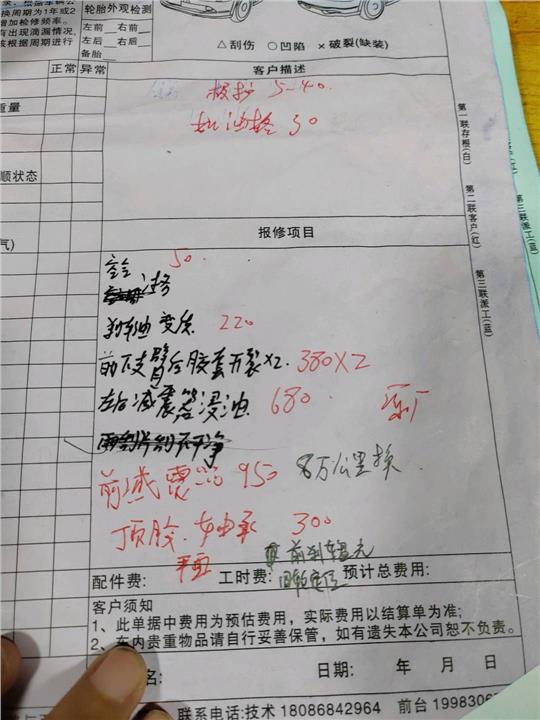 换周期为1年或2
增加检修频率。
有出现滴漏情况,
核根据周期进行
轮胎外观检测
左前 右前
左后 右后
备胎
△刮伤 ○凹陷 ×破裂(缺装)
正常 异常
客户描述
5-40.
机油格 30
重量
顺状态
气)
第一联存根(白)
第二联客户(红)
第三联派工(蓝)
第三联派工(蓝)
报修项目
50.
刹车油变质 220
前下支臂后胶套开裂×2. 380×2
左后减震器浸油 680
雨刮片刮不干净
前减震器 950 8万公里换
顶胶. 轴承 300
平面
配件费: 工时费: 预计总费用:
四轮定位
客户须知
1、此单据中费用为预估费用,实际费用以结算单为准;
2、车内贵重物品请自行妥善保管,如有遗失本公司恕不负责。
名: 日期: 年 月 日
联系电话:技术 18086842964 前台 1998306